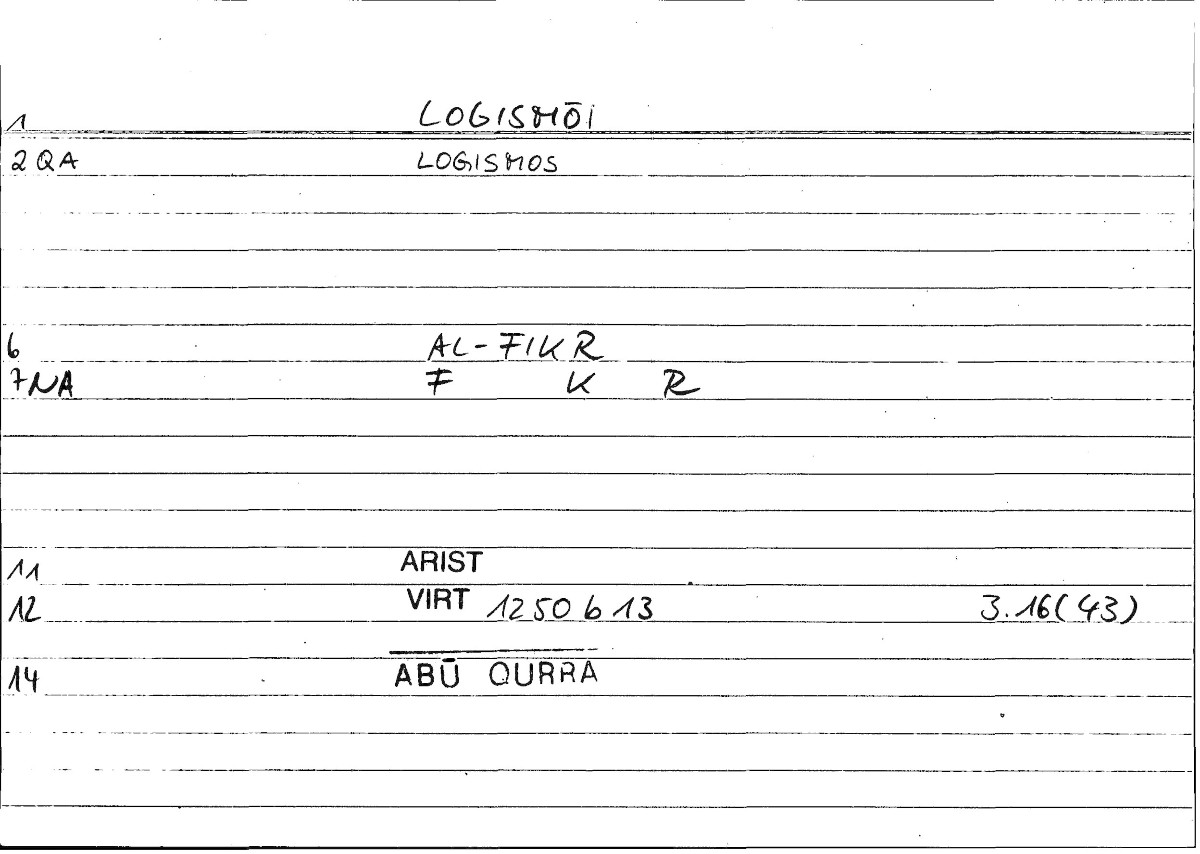 1 LOGISMŌI
2 QA LOGISMOS
6 AL-FIKR
7 NA F K R
11 ARIST
12 VIRT 1250 b 13 3.16(43)
14 ABŪ QURRA